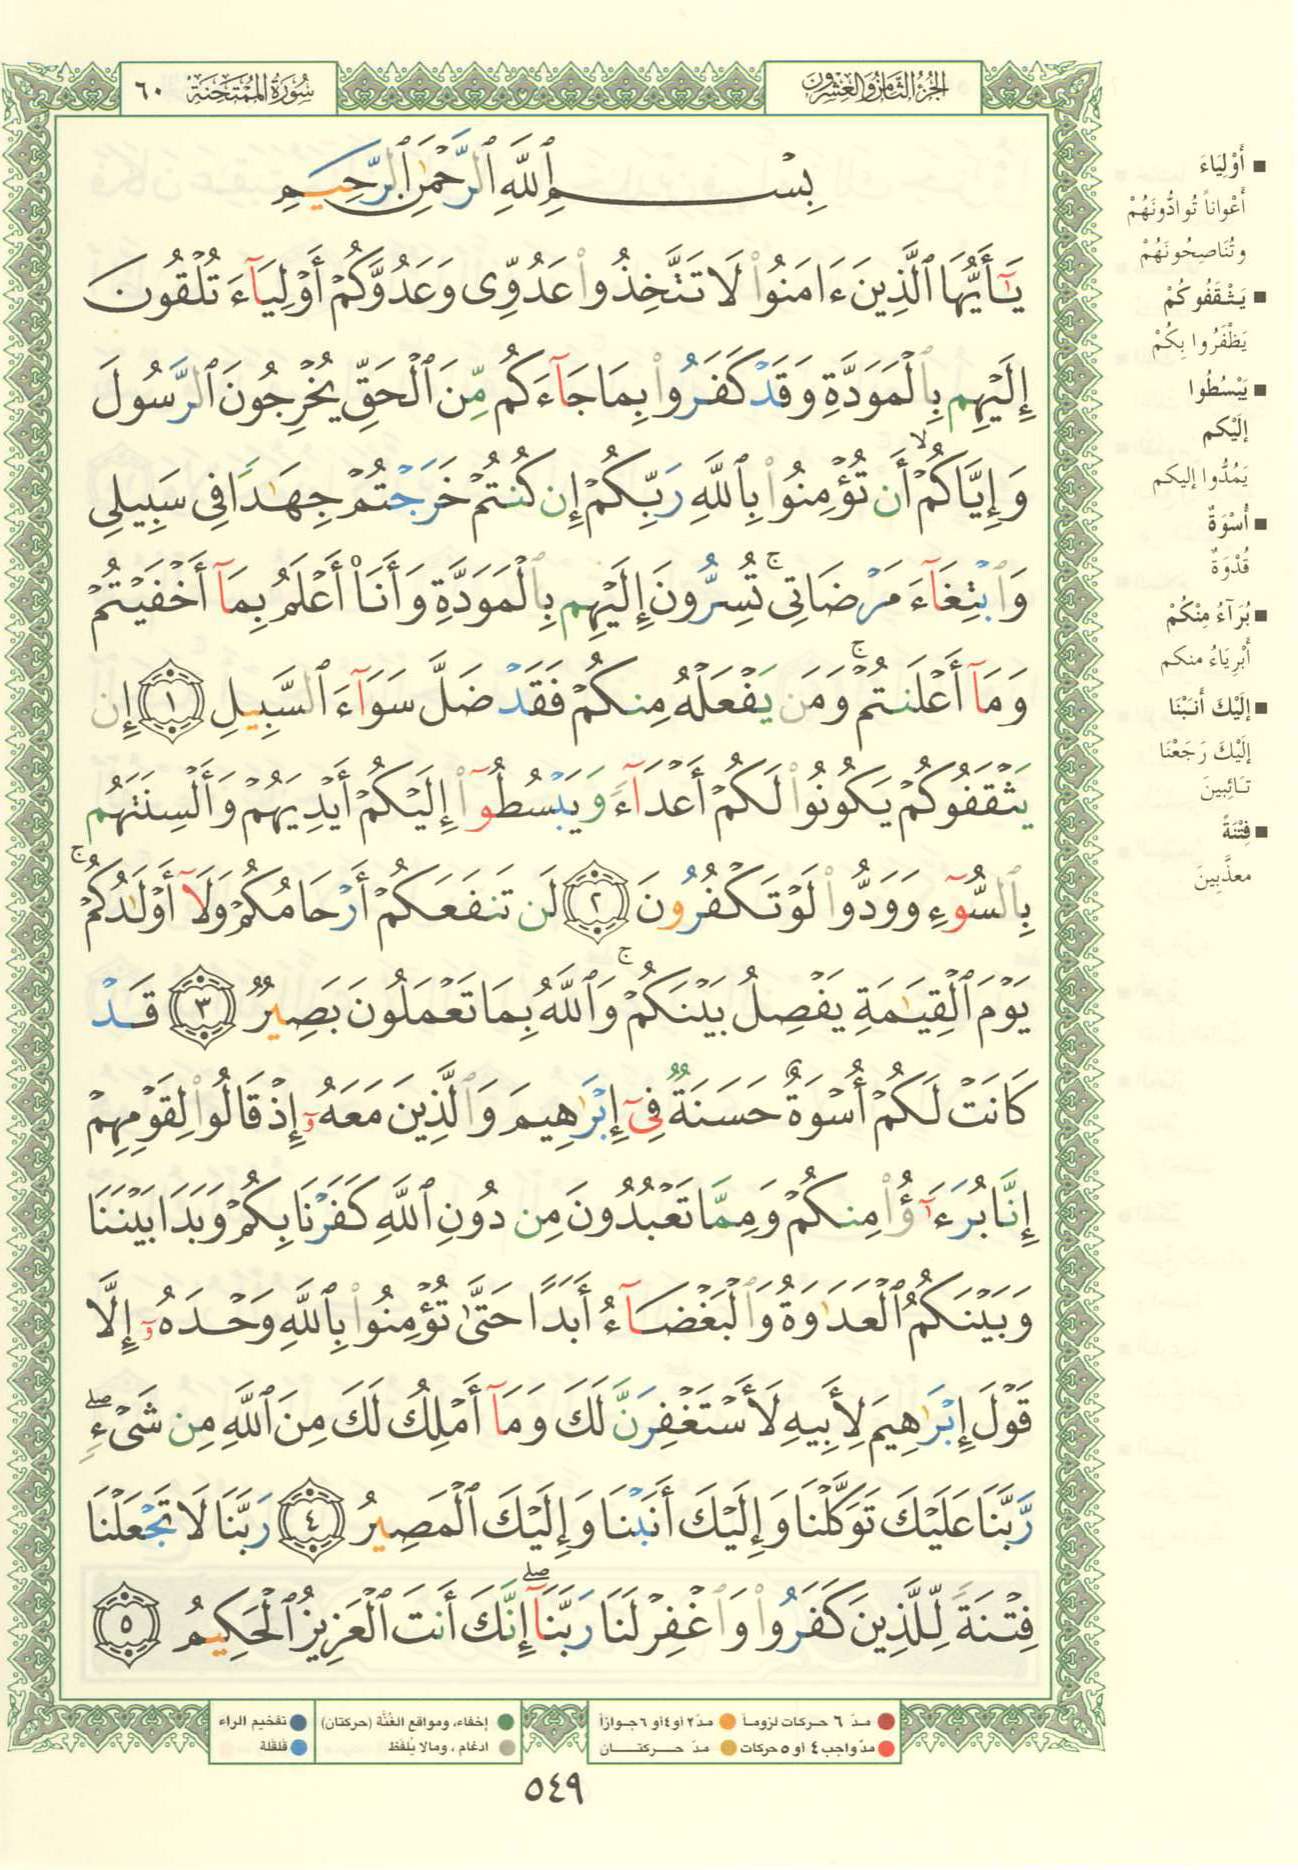 الجزء الثامن والعشرون
سورة الممتحنة ٦٠
بِسْمِ ٱللَّهِ ٱلرَّحْمَٰنِ ٱلرَّحِيمِ
يَٰٓأَيُّهَا ٱلَّذِينَ ءَامَنُوا۟ لَا تَتَّخِذُوا۟ عَدُوِّى وَعَدُوَّكُمْ أَوْلِيَآءَ تُلْقُونَ
إِلَيْهِم بِٱلْمَوَدَّةِ وَقَدْ كَفَرُوا۟ بِمَا جَآءَكُم مِّنَ ٱلْحَقِّ يُخْرِجُونَ ٱلرَّسُولَ
وَإِيَّاكُمْ ۙ أَن تُؤْمِنُوا۟ بِٱللَّهِ رَبِّكُمْ إِن كُنتُمْ خَرَجْتُمْ جِهَٰدًا فِى سَبِيلِى
وَٱبْتِغَآءَ مَرْضَاتِى ۚ تُسِرُّونَ إِلَيْهِم بِٱلْمَوَدَّةِ وَأَنَا۠ أَعْلَمُ بِمَآ أَخْفَيْتُمْ
وَمَآ أَعْلَنتُمْ ۚ وَمَن يَفْعَلْهُ مِنكُمْ فَقَدْ ضَلَّ سَوَآءَ ٱلسَّبِيلِ ١ إِن
يَثْقَفُوكُمْ يَكُونُوا۟ لَكُمْ أَعْدَآءً وَيَبْسُطُوٓا۟ إِلَيْكُمْ أَيْدِيَهُمْ وَأَلْسِنَتَهُم
بِٱلسُّوٓءِ وَوَدُّوا۟ لَوْ تَكْفُرُونَ ٢ لَن تَنفَعَكُمْ أَرْحَامُكُمْ وَلَآ أَوْلَٰدُكُمْ ۚ
يَوْمَ ٱلْقِيَٰمَةِ يَفْصِلُ بَيْنَكُمْ ۚ وَٱللَّهُ بِمَا تَعْمَلُونَ بَصِيرٌ ٣ قَدْ
كَانَتْ لَكُمْ أُسْوَةٌ حَسَنَةٌ فِىٓ إِبْرَٰهِيمَ وَٱلَّذِينَ مَعَهُۥٓ إِذْ قَالُوا۟ لِقَوْمِهِمْ
إِنَّا بُرَءَٰٓؤُا۟ مِنكُمْ وَمِمَّا تَعْبُدُونَ مِن دُونِ ٱللَّهِ كَفَرْنَا بِكُمْ وَبَدَا بَيْنَنَا
وَبَيْنَكُمُ ٱلْعَدَٰوَةُ وَٱلْبَغْضَآءُ أَبَدًا حَتَّىٰ تُؤْمِنُوا۟ بِٱللَّهِ وَحْدَهُۥٓ إِلَّا
قَوْلَ إِبْرَٰهِيمَ لِأَبِيهِ لَأَسْتَغْفِرَنَّ لَكَ وَمَآ أَمْلِكُ لَكَ مِنَ ٱللَّهِ مِن شَىْءٍ ۖ
رَّبَّنَا عَلَيْكَ تَوَكَّلْنَا وَإِلَيْكَ أَنَبْنَا وَإِلَيْكَ ٱلْمَصِيرُ ٤ رَبَّنَا لَا تَجْعَلْنَا
فِتْنَةً لِّلَّذِينَ كَفَرُوا۟ وَٱغْفِرْ لَنَا رَبَّنَآ ۖ إِنَّكَ أَنتَ ٱلْعَزِيزُ ٱلْحَكِيمُ ٥
■ أَوْلِيَاءَ
أَعْواناً تُوادُّونَهُمْ
وتُنَاصِحُونَهُمْ
■ يَثْقَفُوكُمْ
يَظْفَرُوا بِكُمْ
■ يَبْسُطُوا
إلَيْكم
يَمُدُّوا إليكم
■ أُسْوَةٌ
قُدْوَةٌ
■ بُرَآءُ مِنْكُمْ
أَبْرِيَاءُ منكم
■ إلَيْكَ أَنَبْنَا
إلَيْكَ رَجَعْنَا
تَائِبينَ
■ فِتْنَةً
معذَّبِينَ
مدّ ٦ حركات لزوماً ● مدّ ٢ أو ٤ أو ٦ جوازاً
مدّ واجب ٤ أو ٥ حركات ● مدّ حركتان
إخفاء، ومواقع الغُنَّة (حركتان) ● تفخيم الراء
ادغام، ومالا يُلفَظ ● قلقلة
٥٤٩